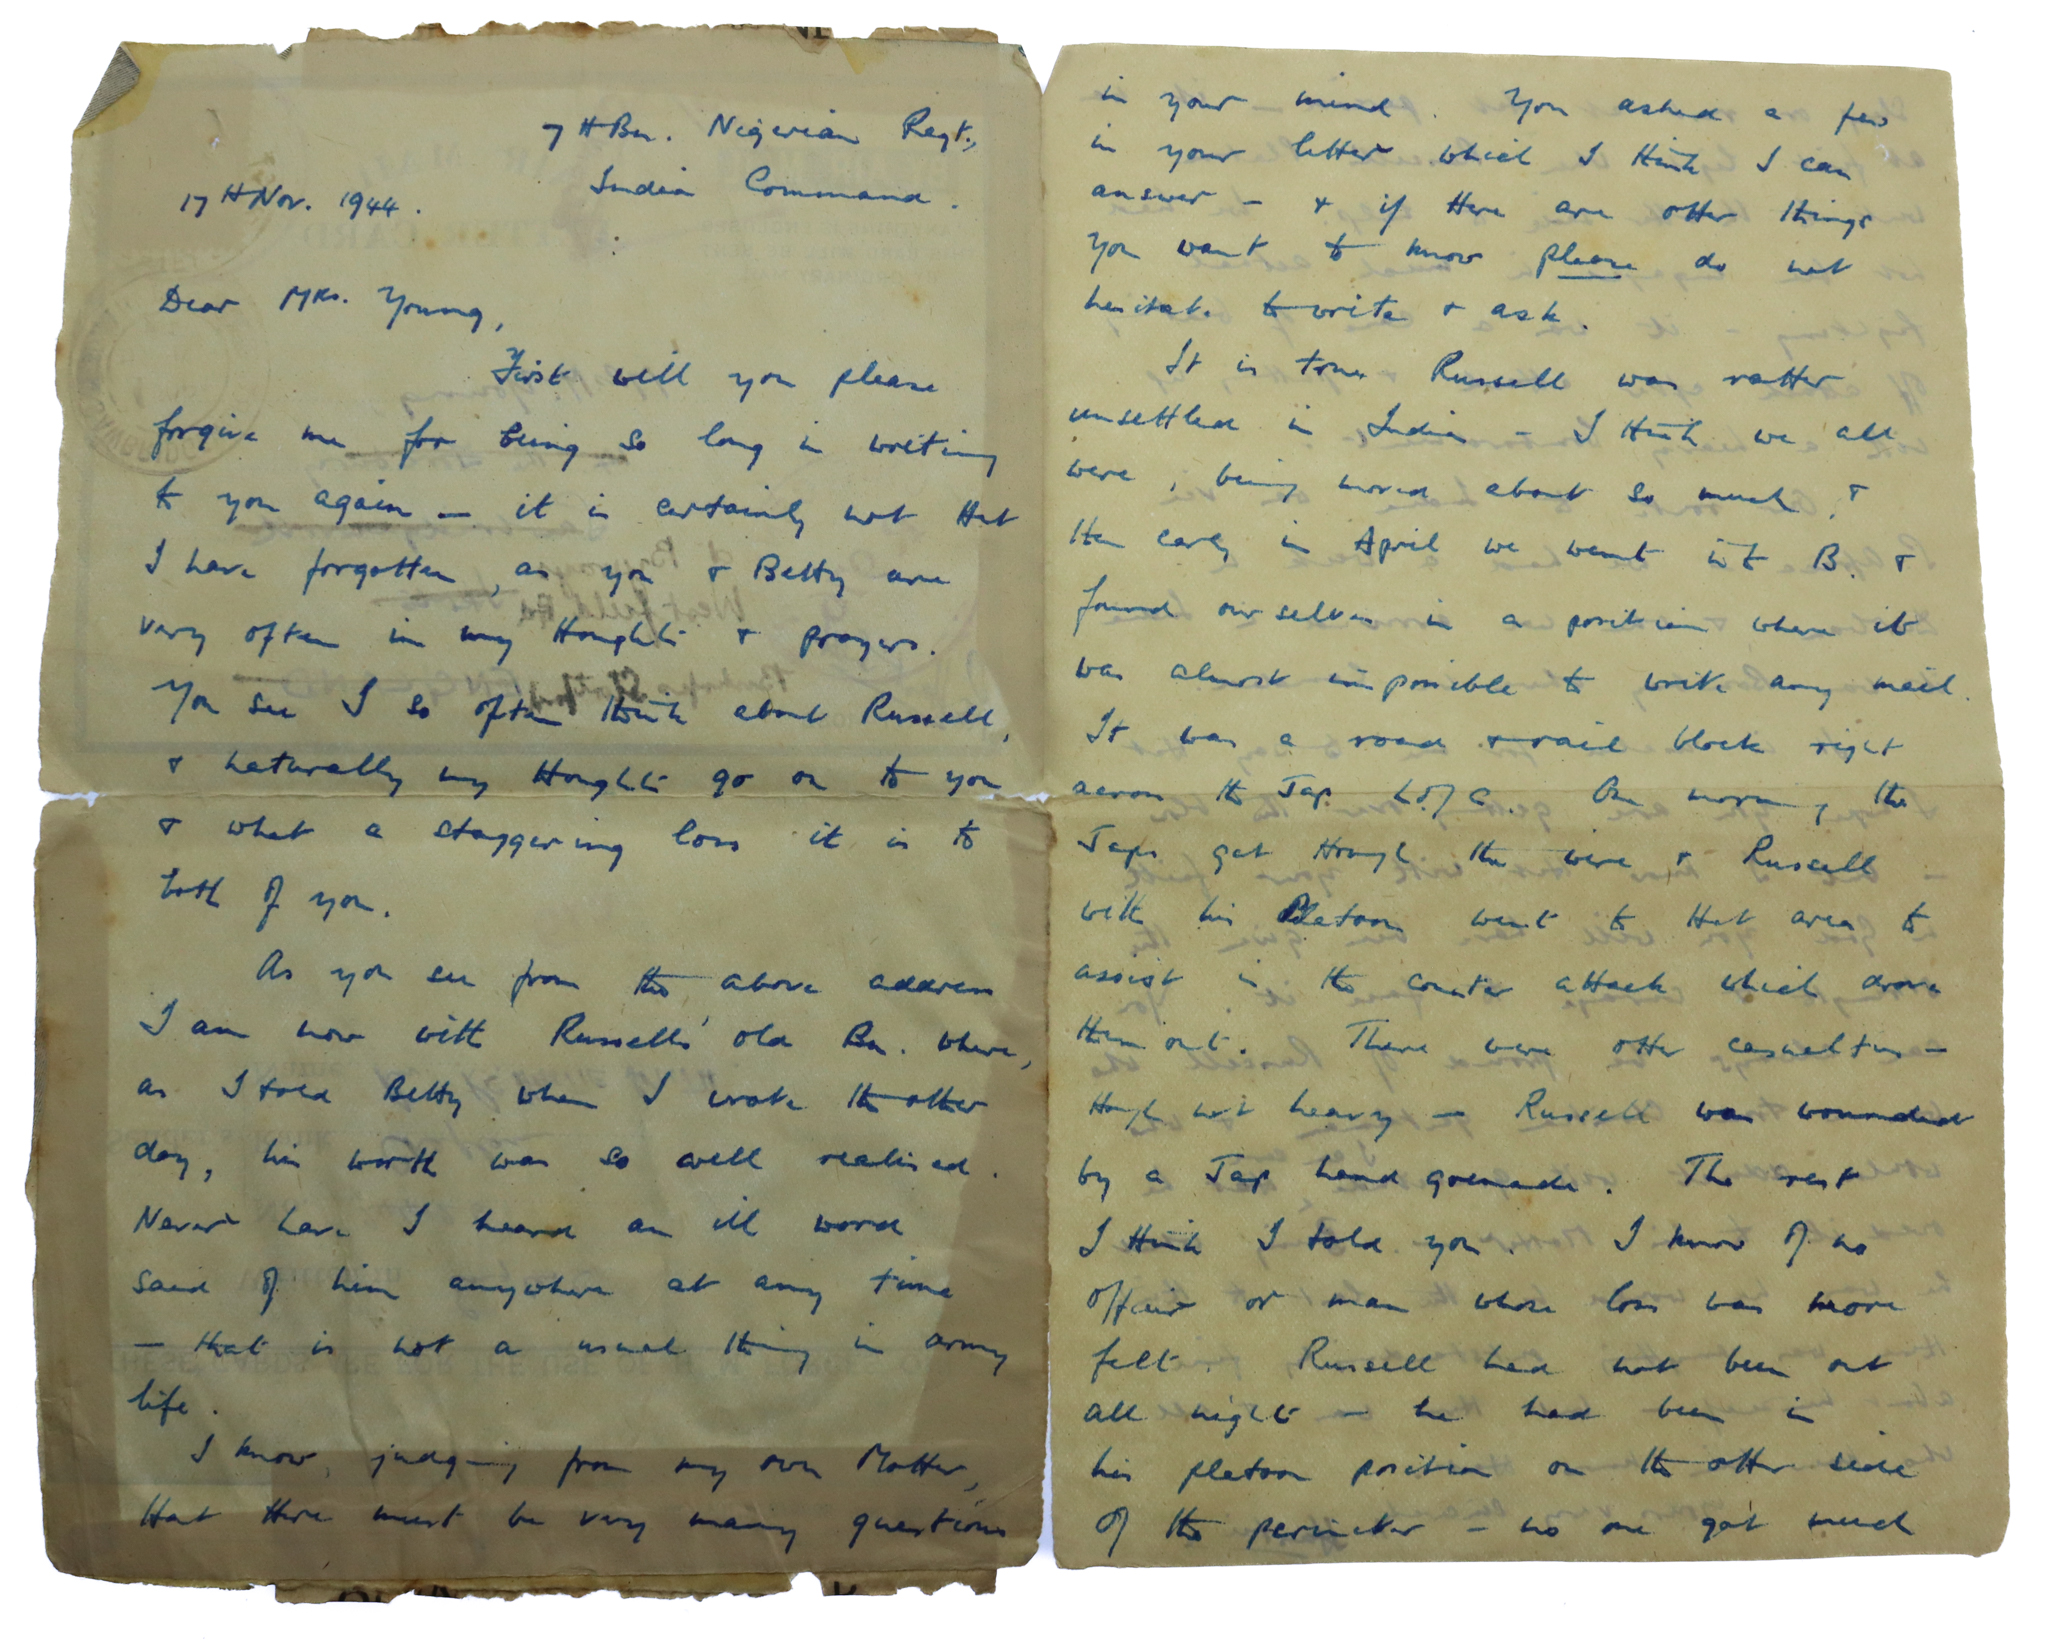 7th Bn. Nigerian Regt.,
India Command.
17th Nov. 1944.
Dear Mrs. Young,
First will you please
forgive me for being so long in writing
to you again — it is certainly not that
I have forgotten, as you & Betty are
very often in my thoughts & prayers.
You see I so often think about Russell,
& naturally my thoughts go on to you
& what a staggering loss it is to
both of you.
As you see from the above address
I am now with Russell's old Bn. where,
as I told Betty when I wrote the other
day, his worth was so well realised.
Never have I heard an ill word
said of him anywhere at any time
— that is not a usual thing in army
life.
I know, judging from my own Mother,
that there must be very many questions
in your mind. You asked a few
in your letter which I think I can
answer — & if there are other things
you want to know please do not
hesitate to write & ask.
It is true Russell was rather
unsettled in India — I think we all
were, being moved about so much, &
then early in April we went into B. &
found ourselves in a position where it
was almost impossible to write any mail.
It was a road & rail block right
across the Jap L of C. One morning the
Japs got through the wire & Russell
with his Platoon went to that area to
assist in the counter attack which drove
them out. There were other casualties —
though not heavy — Russell was wounded
by a Jap hand grenade. The rest
I think I told you. I know of no
officer or man whose loss was more
felt. Russell had not been out
all night — he had been in
his platoon position on the other side
of the perimeter — no one got much